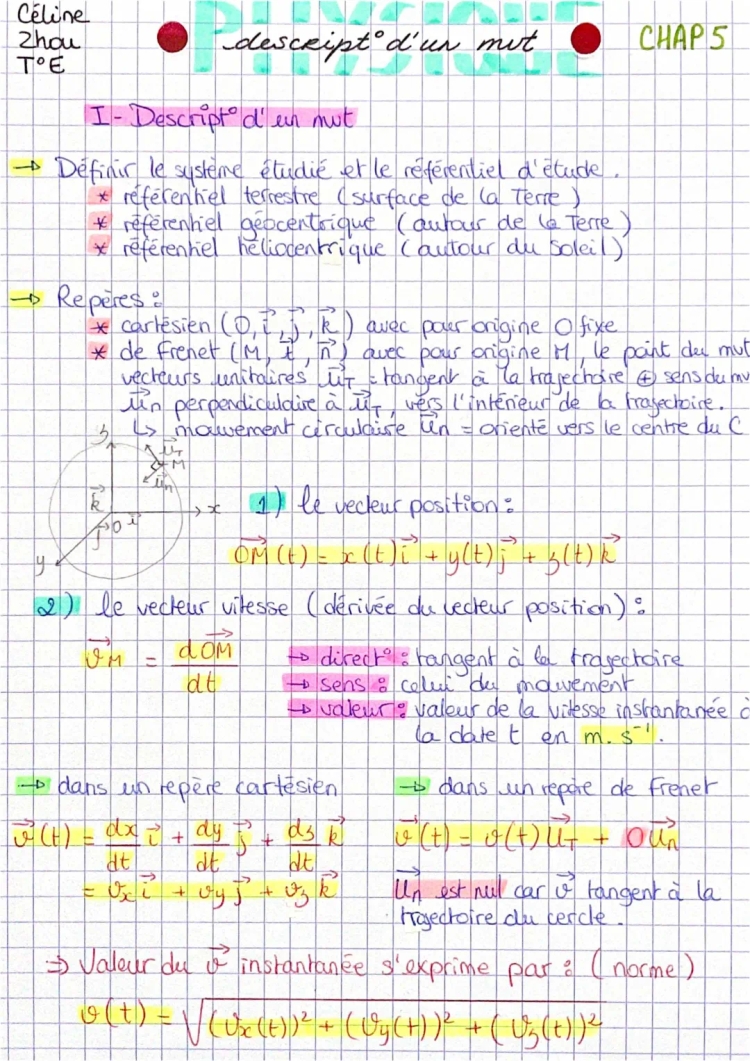 Céline
Zhou
T°E
PHYSIQUE
descript° d'un mvt
CHAP 5
I - Descript° d'un mvt
→ Définir le système étudié et le référentiel d'étude.
* référentiel terrestre (surface de la Terre)
* référentiel géocentrique (autour de la Terre)
* référentiel héliocentrique (autour du Soleil)
→ Repères :
* cartésien (O, i⃗, j⃗, k⃗) avec pour origine O fixe
* de Frenet (M, t⃗, n⃗) avec pour origine M, le point du mvt
vecteurs unitaires u⃗T = tangent à la trajectoire ⊕ sens du mv
u⃗n perpendiculaire à u⃗T, vers l'intérieur de la trajectoire.
↳ mouvement circulaire u⃗n = orienté vers le centre du C
z
u⃗T
M
u⃗n
k⃗
x
O
i⃗
j⃗
y
1) le vecteur position :
OM⃗(t) = x(t) i⃗ + y(t) j⃗ + z(t) k⃗
2) le vecteur vitesse (dérivée du vecteur position) :
v⃗M = dOM⃗/dt
→ direct° : tangent à la trajectoire
→ sens : celui du mouvement
→ valeur : valeur de la vitesse instantanée à
la date t en m.s⁻¹.
→ dans un repère cartésien
v⃗(t) = dx/dt i⃗ + dy/dt j⃗ + dz/dt k⃗
= vx i⃗ + vy j⃗ + vz k⃗
→ dans un repère de Frenet
v⃗(t) = v(t) u⃗T + 0 u⃗n
u⃗n est nul car v⃗ tangent à la
trajectoire du cercle.
⇒ Valeur du v⃗ instantanée s'exprime par : (norme)
v(t) = √((vx(t))² + (vy(t))² + (vz(t))²